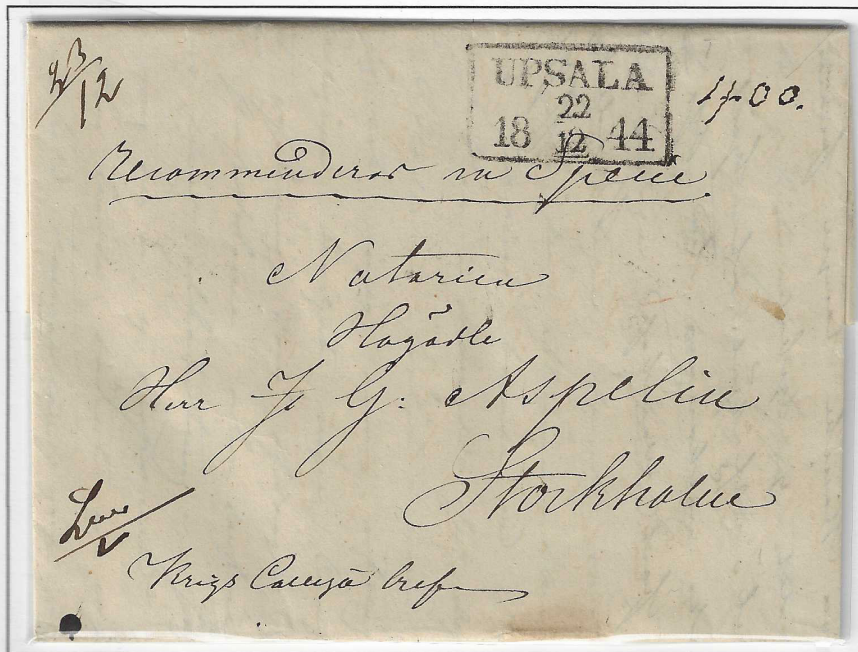 23/12
UPSALA
22
18 12 44
1400.
Recommenderas in Specie
Notarien
Högädle
Herr J. G: Aspelin
Stockholm
Krigs Collegii bref